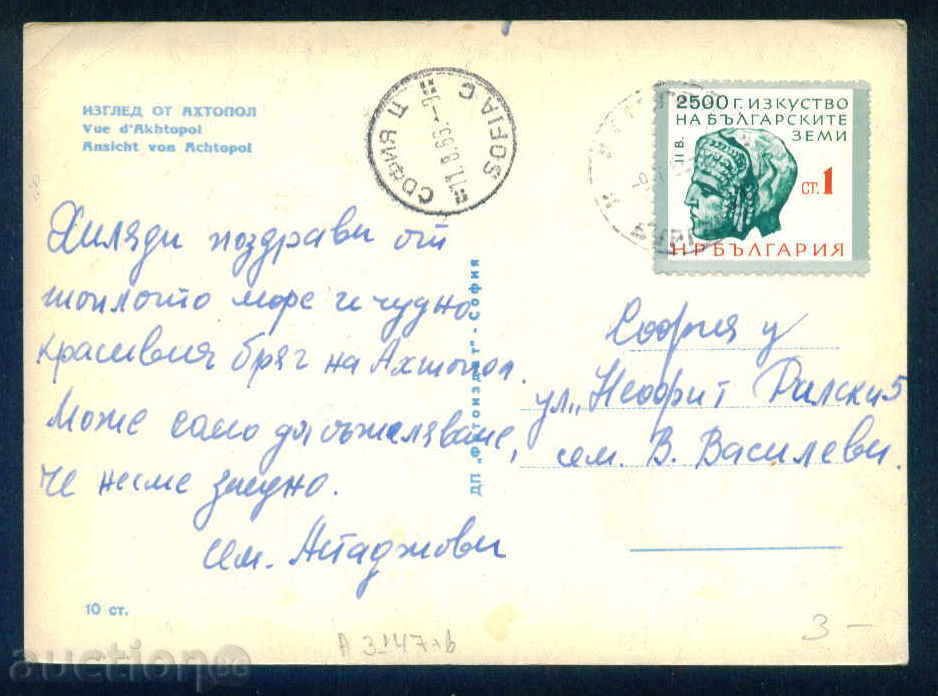 ИЗГЛЕД ОТ АХТОПОЛ
Vue d'Akhtopol
Ansicht von Achtopol
СОФИЯ Ц
SOFIA C
2500 Г. ИЗКУСТВО
НА БЪЛГАРСКИТЕ
ЗЕМИ
II В.
СТ. 1
НР БЪЛГАРИЯ
Хиляди поздрави от
топлото море и чудно
красивия бряг на Ахтопол.
Може само да съжеляваме,
че несме заедно.
сем.
ДП „Фотоиздат" - София
София
ул. „Неофит Рилски 5
сем. В. Василеви.
10 ст.
А 3147-в
3 –
auction